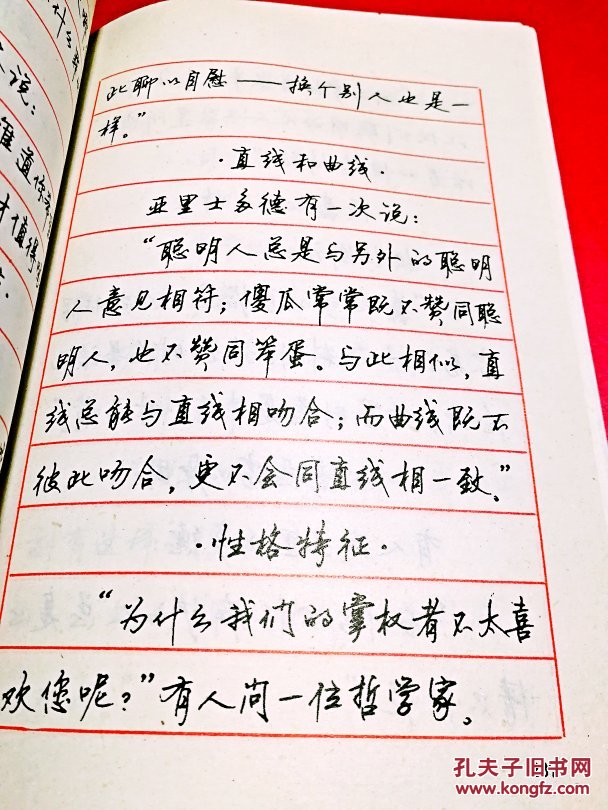 说：
难道你
才值得
此聊以自慰——换个别人也是一
样。”
·直线和曲线·
亚里士多德有一次说：
“聪明人总是与另外的聪明
人意见相符；傻瓜常常既不赞同聪
明人，也不赞同笨蛋。与此相似，直
线总能与直线相吻合；而曲线既不
彼此吻合，更不会同直线相一致。”
·性格特征·
“为什么我们的掌权者不太喜
欢您呢？”有人问一位哲学家。
孔夫子旧书网
www.kongfz.com